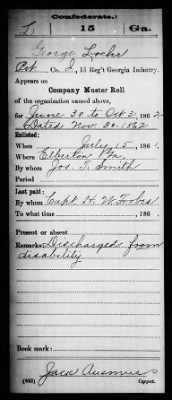 Confederate.
L 15 Ga.
George Locke
Co. I, 15 Reg't Georgia Infantry.
Appears on
Company Muster Roll
of the organization named above,
for June 30 to Oct 31, 1862
Dated Nov. 30, 1862
Enlisted:
When July 15, 186
Where Elberton Ga.
By whom Jos. T. Smith
Period
Last paid:
By whom Capt. H. W. Forbes
To what time , 186 .
Present or absent
Remarks: Discharged from
disability
Book mark:
(642) Copyist.